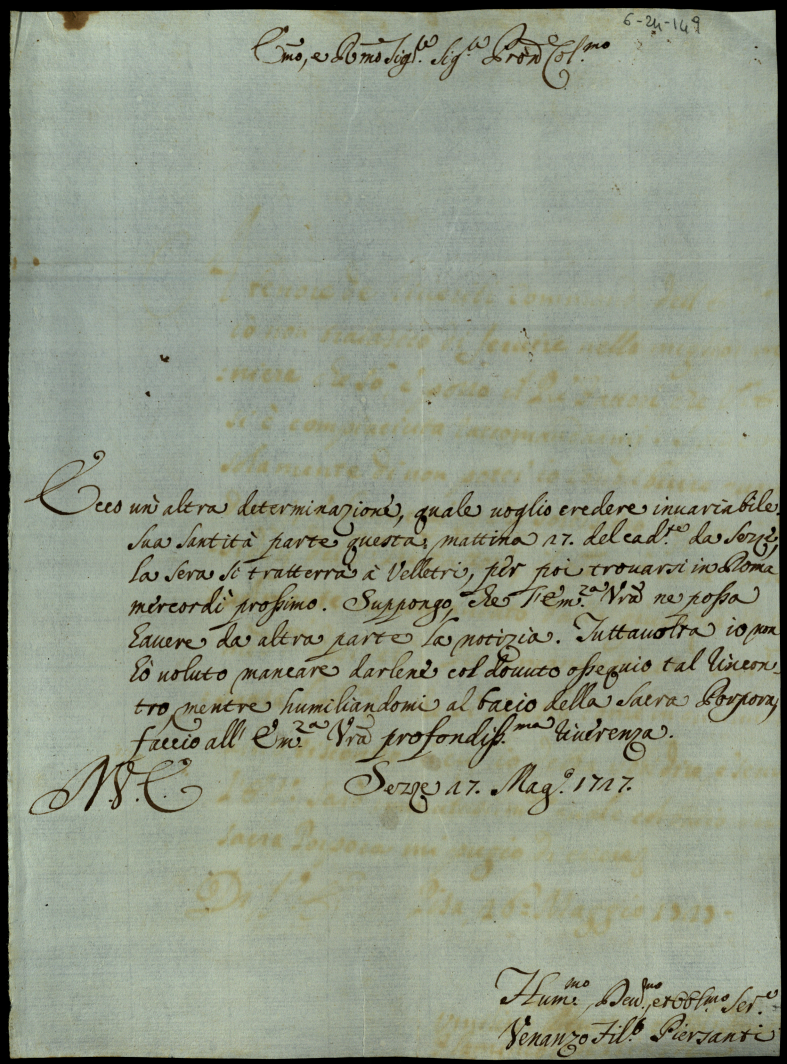 6-24-149
Emo, e Rmo Sigre. Sigre Prōn Colmo
Ecco un'altra determinazione, quale uoglio credere inuariabile.
Sua Santità parte questa mattina 17. del cadte. da Sezze,
la sera si tratterrà à Velletri, per poi trouarsi in Roma
mercordì prossimo. Suppongo, che l'Emza Vrã ne possa
hauere da altra parte la notizia. Tuttauolta io non
hò uoluto mancare darlene col douuto ossequio tal riincon-
tro, mentre humiliandomi al bacio della Sacra Porpora,
faccio all' Emza Vrã profondissma. riuerenza.
Sezze 17. Mago. 1727.
Hummo, Deumo, et obblmo Sere.
Venanzo Filo. Piersanti